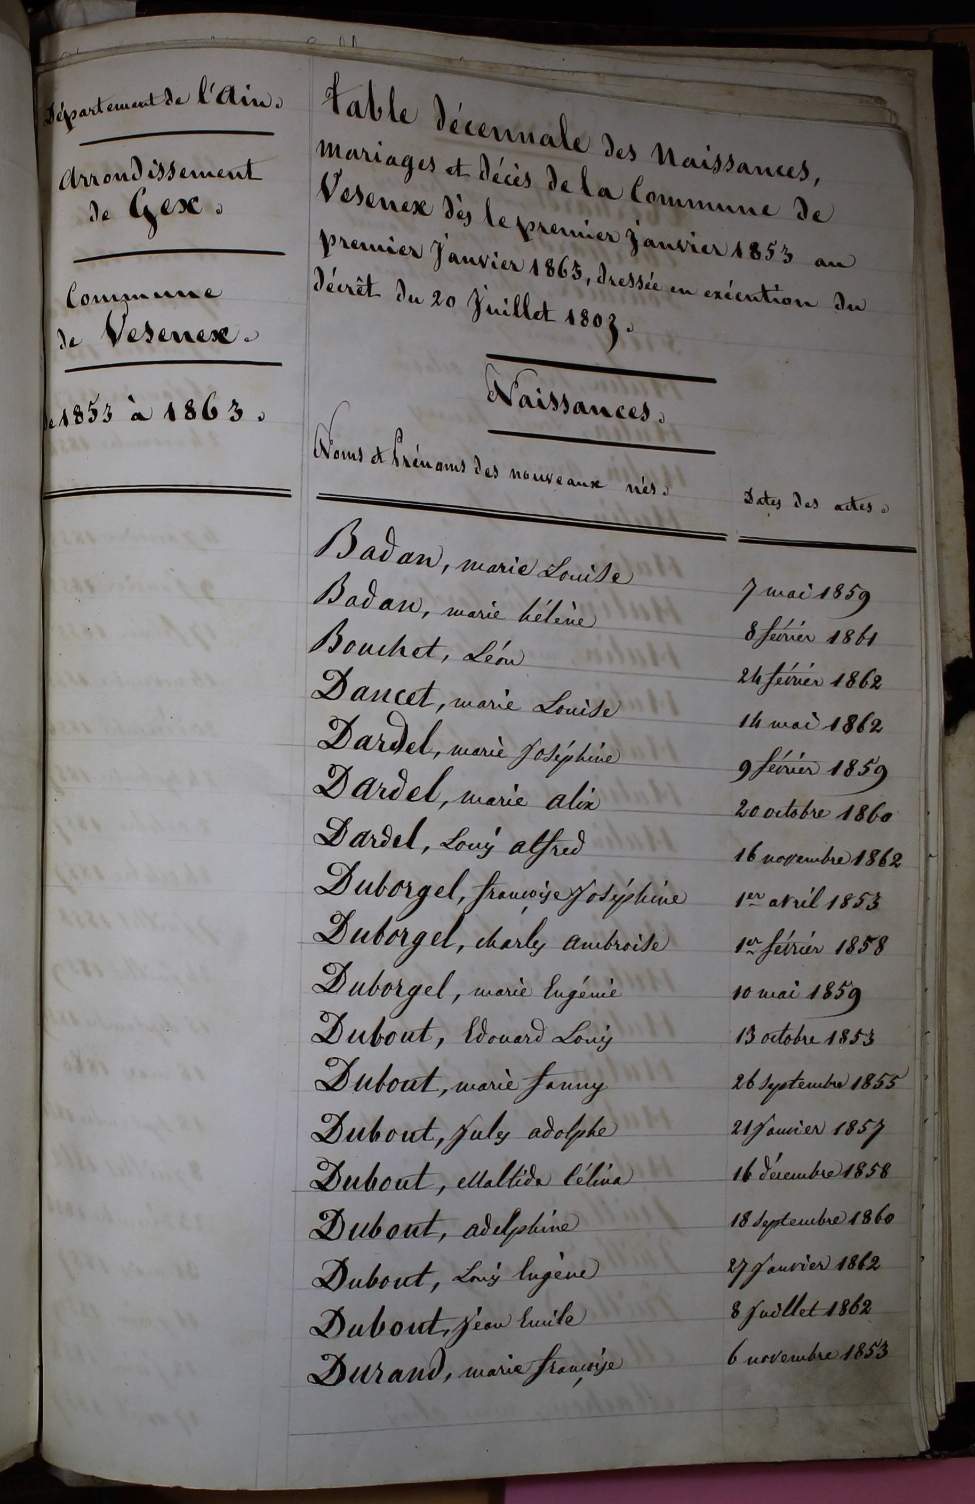 Département de l'Ain.
Arrondissement
de Gex.
Commune
de Vesenex.
de 1853 à 1863.
Table décennale des Naissances,
mariages et décès de la Commune de
Vesenex dès le premier janvier 1853 au
premier Janvier 1863, dressée en exécution du
décrêt du 20 Juillet 1803.
Naissances.
Noms et Prénoms des nouveaux nés. Dates des actes.
Badan, marie Louise 7 mai 1859
Badan, marie hélène 8 février 1861
Bouchet, Léon 24 février 1862
Dancet, marie Louise 14 mai 1862
Dardel, marie Joséphine 9 février 1859
Dardel, marie alix 20 octobre 1860
Dardel, Louis alfred 16 novembre 1862
Duborgel, françoise Joséphine 1er avril 1853
Duborgel, charles ambroise 1er février 1858
Duborgel, marie Eugénie 10 mai 1859
Dubout, Edouard Louis 13 octobre 1853
Dubout, marie fanny 26 septembre 1855
Dubout, Jules adolphe 21 Janvier 1857
Dubout, Maltide Célina 16 décembre 1858
Dubout, adelphine 18 septembre 1860
Dubout, Louis Eugène 27 Janvier 1862
Dubout, Jean Emile 8 Juillet 1862
Durand, marie françoise 6 novembre 1853